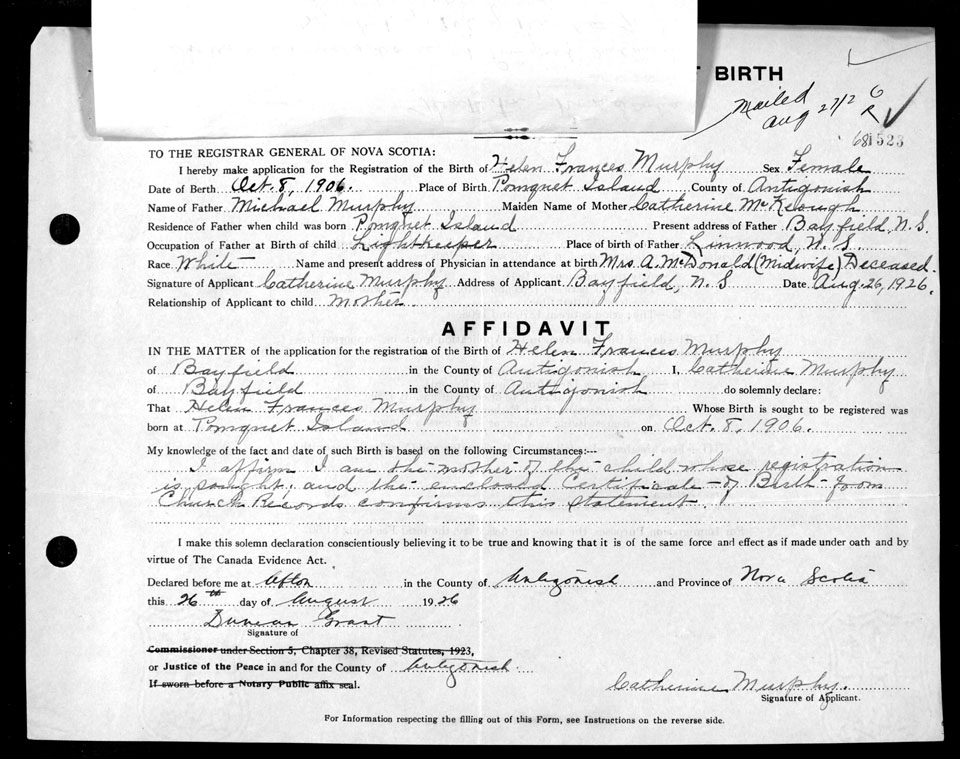 BIRTH
Mailed
Aug 27/26
681523
TO THE REGISTRAR GENERAL OF NOVA SCOTIA:
I hereby make application for the Registration of the Birth of Helen Frances Murphy Sex Female
Date of Birth Oct. 8, 1906. Place of Birth Pomquet Island County of Antigonish
Name of Father Michael Murphy Maiden Name of Mother Catherine McKeough
Residence of Father when child was born Pomquet Island Present address of Father Bayfield, N.S.
Occupation of Father at Birth of child Lightkeeper Place of birth of Father Linwood, N.S.
Race White Name and present address of Physician in attendance at birth Mrs. A. McDonald (Midwife) Deceased.
Signature of Applicant Catherine Murphy Address of Applicant Bayfield, N.S Date Aug. 26, 1926.
Relationship of Applicant to child Mother
AFFIDAVIT
IN THE MATTER of the application for the registration of the Birth of Helen Frances Murphy
of Bayfield in the County of Antigonish I, Catherine Murphy
of Bayfield in the County of Antigonish do solemnly declare:
That Helen Frances Murphy Whose Birth is sought to be registered was
born at Pomquet Island on Oct. 8, 1906.
My knowledge of the fact and date of such Birth is based on the following Circumstances:--
I affirm I am the mother of the child whose registration
is sought, and the enclosed Certificate of Birth from
Church Records confirms this statement.
I make this solemn declaration conscientiously believing it to be true and knowing that it is of the same force and effect as if made under oath and by
virtue of The Canada Evidence Act.
Declared before me at Afton in the County of Antigonish and Province of Nova Scotia
this 26th day of August 1926
Duncan Grant
Signature of
Commissioner under Section 5, Chapter 38, Revised Statutes, 1923,
or Justice of the Peace in and for the County of Antigonish
If sworn before a Notary Public affix seal.
Catherine Murphy.
Signature of Applicant.
For Information respecting the filling out of this Form, see Instructions on the reverse side.